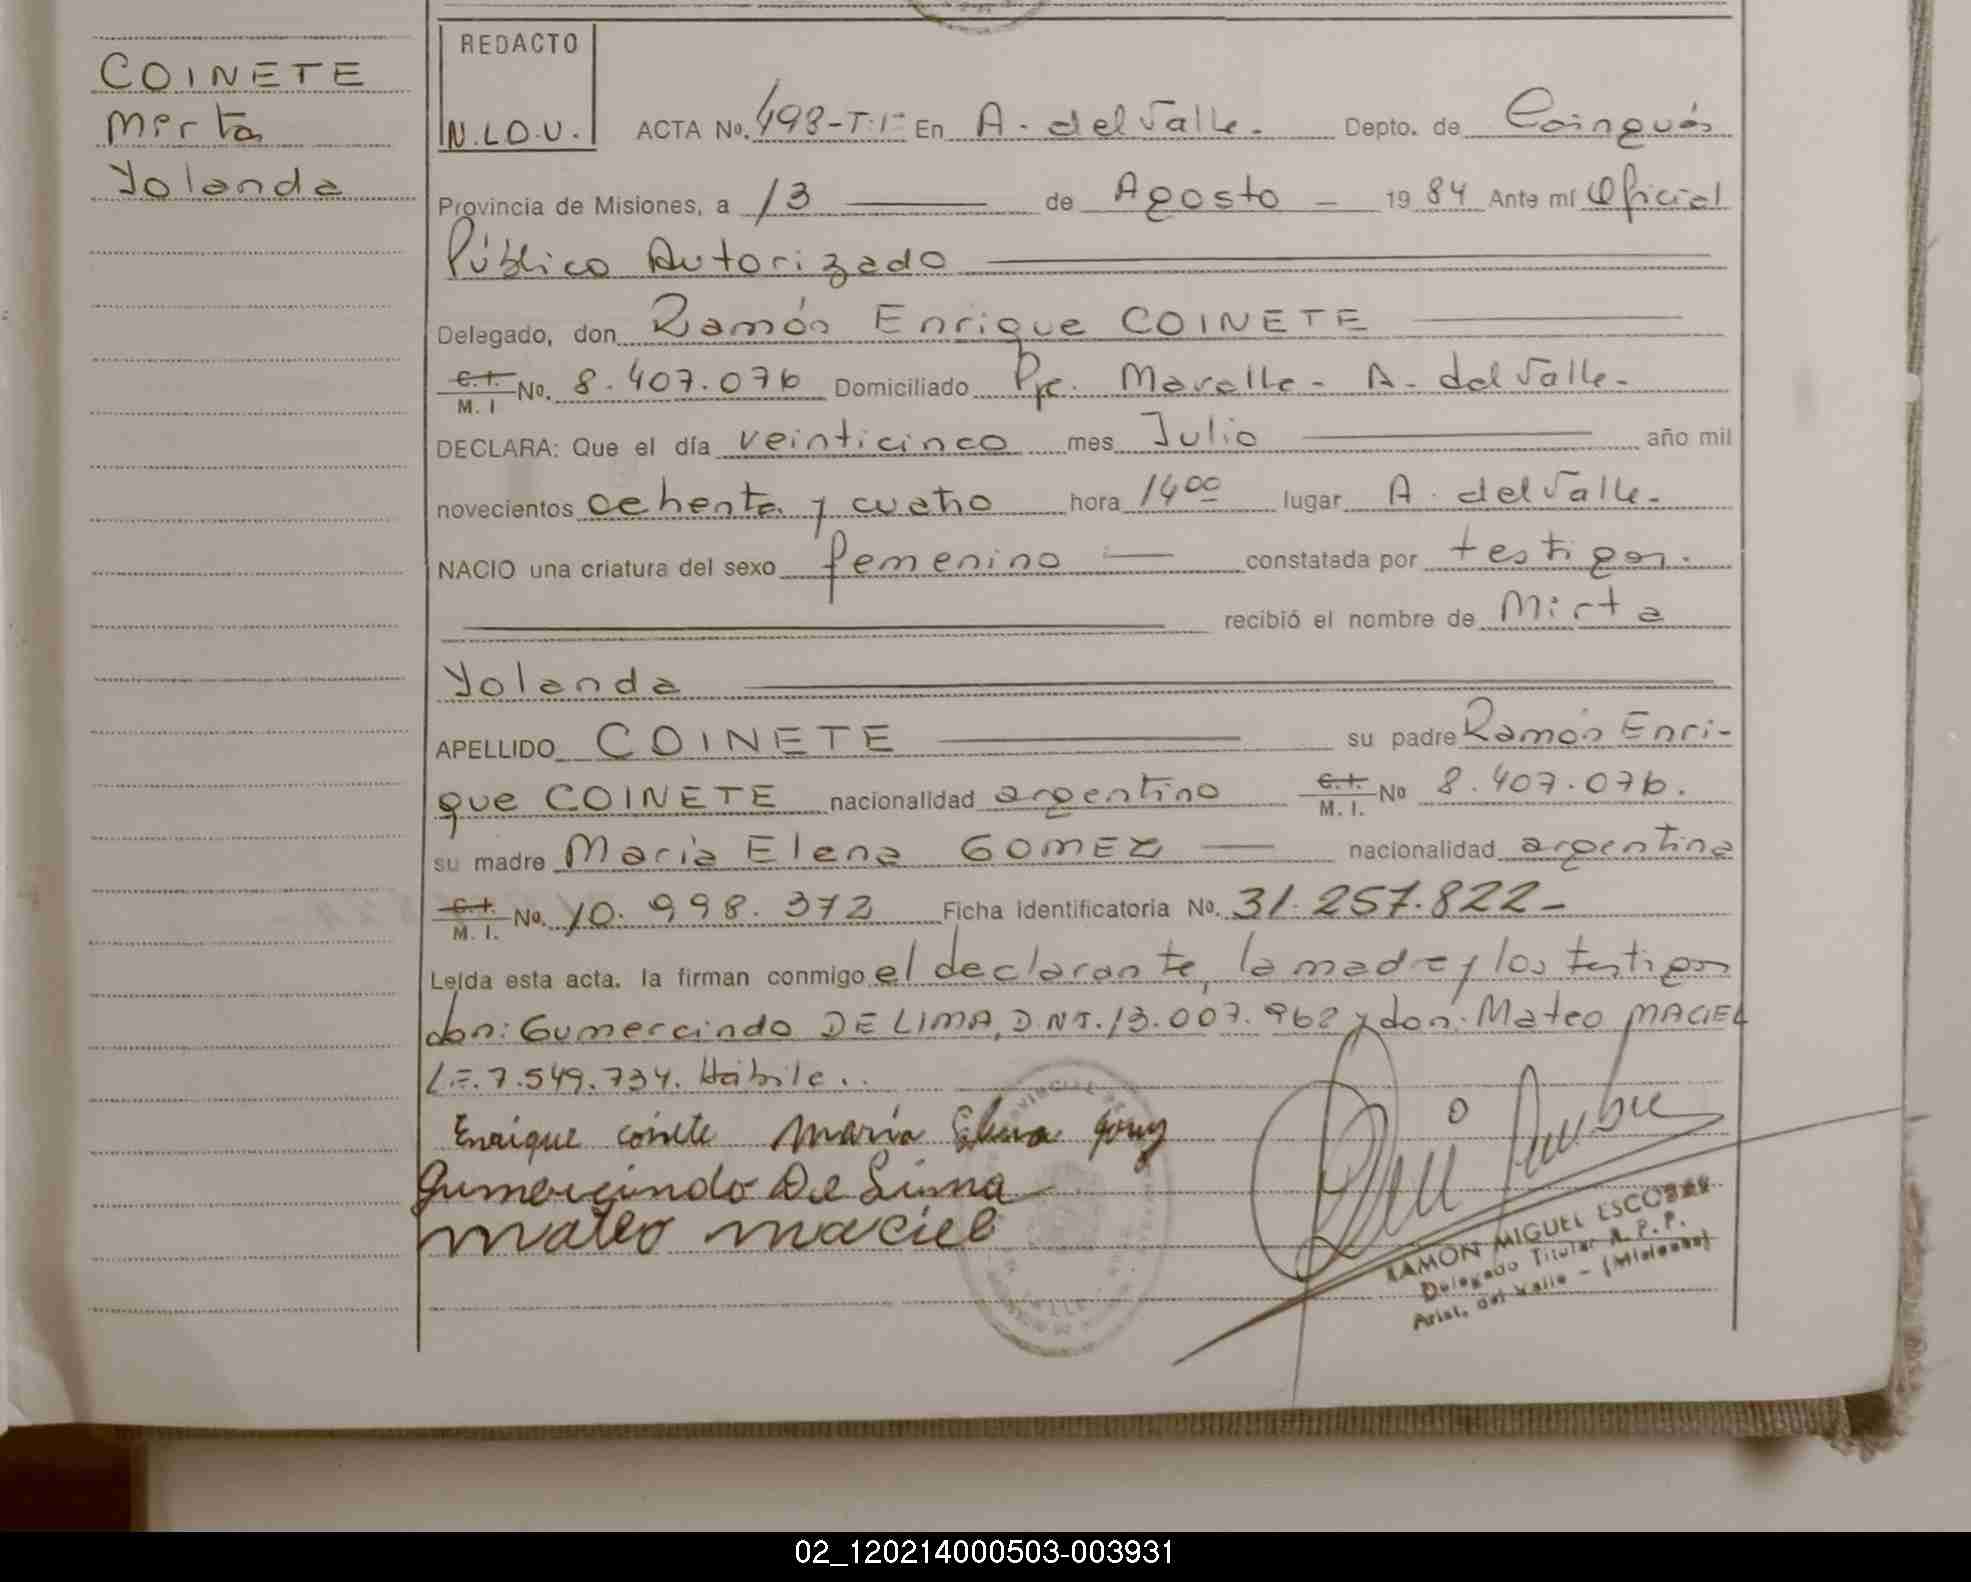 COINETE
Mirta
Yolanda
REDACTO
N.L.D.U.
ACTA No. 498-T:1º En A. del Valle. Depto. de Cainguás
Provincia de Misiones, a 13 de Agosto - 1984 Ante mí Oficial
Público Autorizado
Delegado, don Ramón Enrique COINETE
C.I. M. I No. 8.407.076 Domiciliado Pje. Maralle - A. del Valle -
DECLARA: Que el día veinticinco mes Julio año mil
novecientos ochenta y cuatro hora 14 00 lugar A. del Valle -
NACIO una criatura del sexo femenino constatada por testigos.
recibió el nombre de Mirta
Yolanda
APELLIDO COINETE su padre Ramón Enri-
que COINETE nacionalidad argentino C.I. M. I. No 8.407.076.
su madre María Elena GOMEZ nacionalidad argentina
C.I. M. I. No. 10.998.372 Ficha identificatoria No. 31.257.822-
Leída esta acta, la firman conmigo el declarante, la madre y los testigos
don: Gumercindo DE LIMA, D.N.I. 13.007.962 y don: Mateo MACIEL
L.E. 7.549.734. Hábile..
Enrique coinete María Elena gomez
Gumercindo De Lima
mateo maciel
RAMON MIGUEL ESCOBAR
Delegado Titular R. P. P.
Arist. del Valle - (Misiones)
02_120214000503-003931